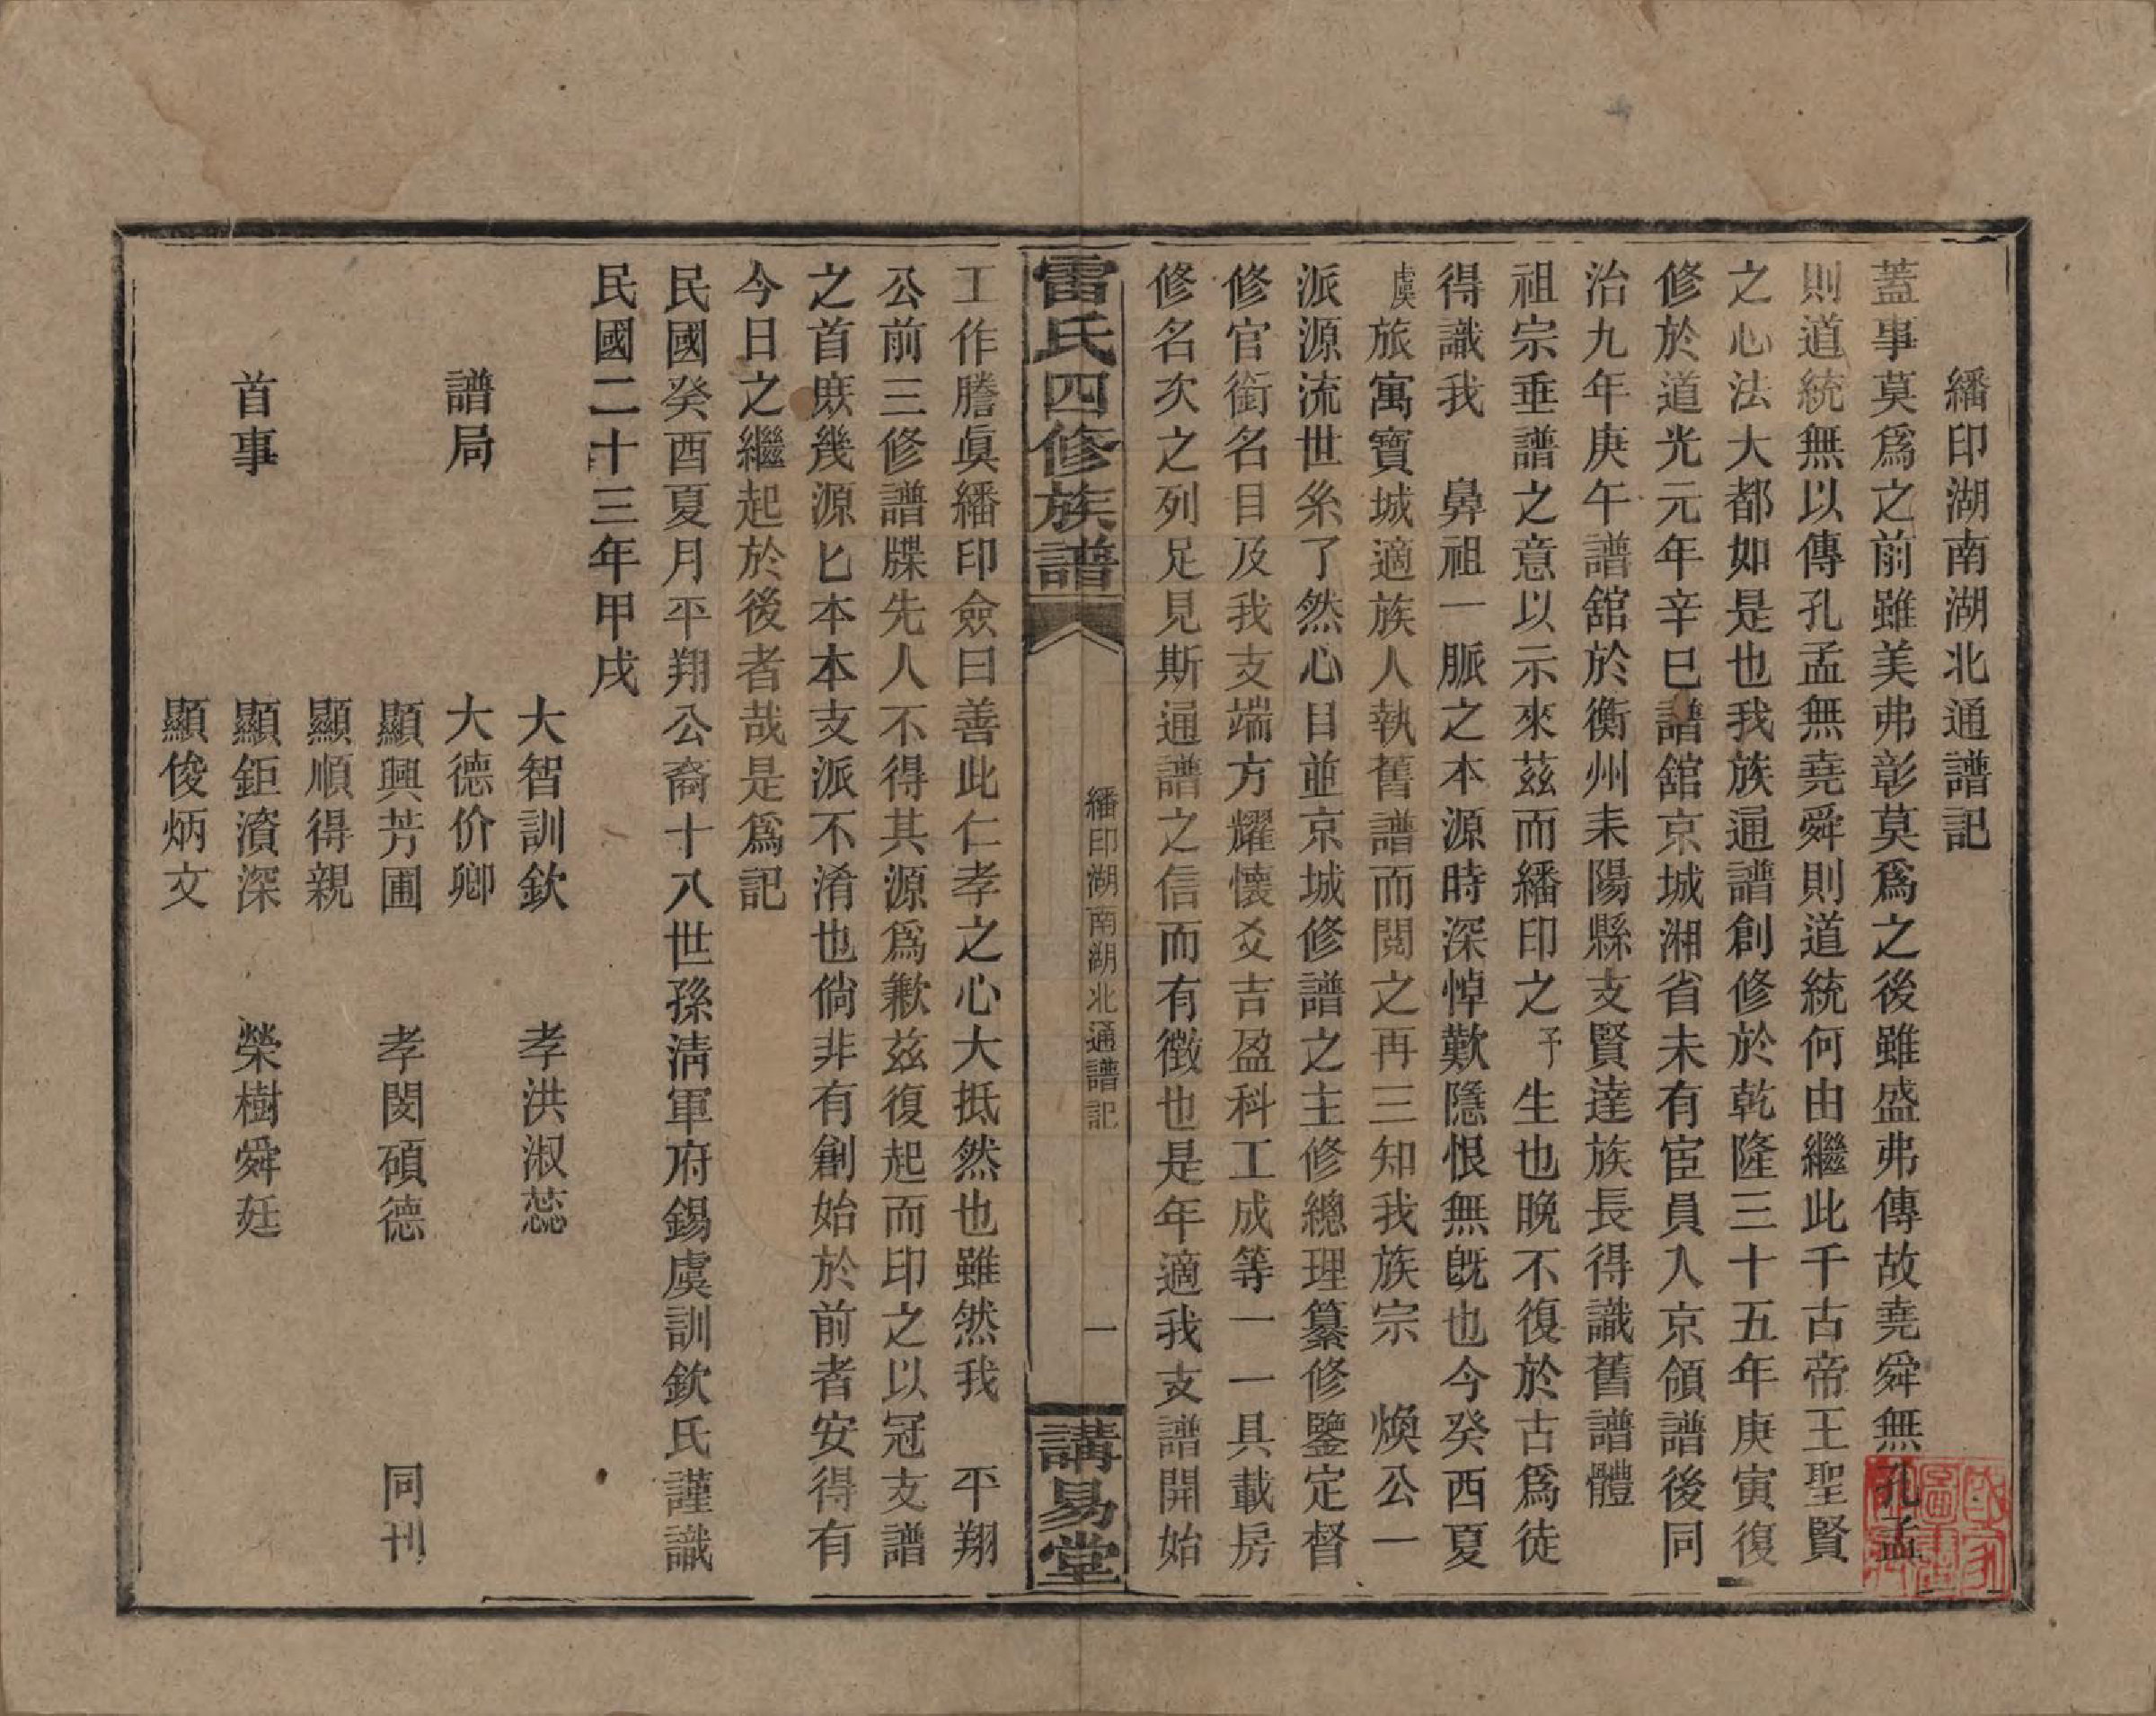 繙印湖南湖北通譜記
蓋事莫爲之前雖美弗彰莫爲之後雖盛弗傳故堯舜無孔孟
則道統無以傳孔孟無堯舜則道統何由繼此千古帝王聖賢
之心法大都如是也我族通譜創修於乾隆三十五年庚寅復
修於道光元年辛巳譜舘京城湘省未有宦員入京領譜後同
治九年庚午譜舘於衡州耒陽縣支賢達族長得識舊譜體
祖宗垂譜之意以示來茲而繙印之予生也晚不復於古爲徒
得識我　鼻祖一脈之本源時深悼歎隱恨無旣也今癸酉夏
虞旅寓寶城適族人執舊譜而閱之再三知我族宗　煥公一
派源流世系了然心目並京城修譜之主修總理纂修鑒定督
修官銜名目及我支端方耀懷爻吉盈科工成等一一具載房
修名次之列足見斯通譜之信而有徵也是年適我支譜開始
雷氏四修族譜
繙印湖南湖北通譜記
一
講易堂
工作謄眞繙印僉曰善此仁孝之心大抵然也雖然我　平翔
公前三修譜牒先人不得其源爲歉玆復起而印之以冠支譜
之首庶幾源匕本本支派不淆也倘非有創始於前者安得有
今日之繼起於後者哉是爲記
民國癸酉夏月平翔公裔十八世孫淸軍府錫虞訓欽氏謹識
民國二十三年甲戌
大智訓欽　孝洪淑蕊
譜局　大德价卿
顯興芳圃　孝閔碩德　同刊
顯順得親
首事　顯鉅濱深　榮樹舜廷
顯俊炳文